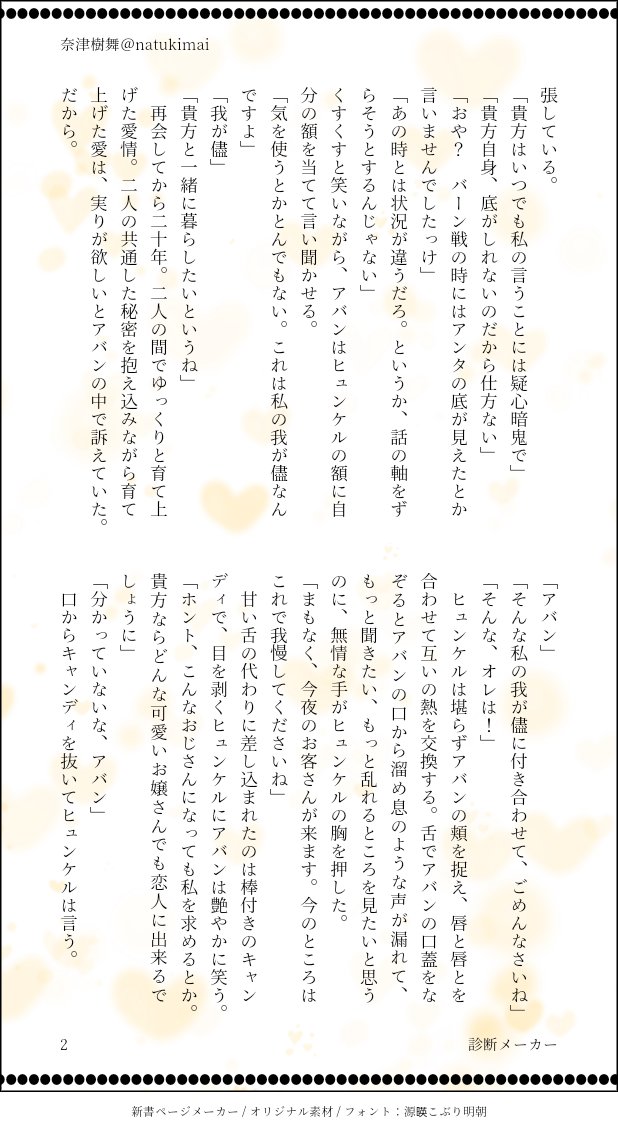 奈津樹舞@natukimai
張している。
「貴方はいつでも私の言うことには疑心暗鬼で」
「貴方自身、底がしれないのだから仕方ない」
「おや？　バーン戦の時にはアンタの底が見えたとか
言いませんでしたっけ」
「あの時とは状況が違うだろ。というか、話の軸をず
らそうとするんじゃない」
くすくすと笑いながら、アバンはヒュンケルの額に自
分の額を当てて言い聞かせる。
「気を使うとかとんでもない。これは私の我が儘なん
ですよ」
「我が儘」
「貴方と一緒に暮らしたいというね」
　再会してから二十年。二人の間でゆっくりと育て上
げた愛情。二人の共通した秘密を抱え込みながら育て
上げた愛は、実りが欲しいとアバンの中で訴えていた。
だから。
「アバン」
「そんな私の我が儘に付き合わせて、ごめんなさいね」
「そんな、オレは！」
　ヒュンケルは堪らずアバンの頬を捉え、唇と唇とを
合わせて互いの熱を交換する。舌でアバンの口蓋をな
ぞるとアバンの口から溜め息のような声が漏れて、
もっと聞きたい、もっと乱れるところを見たいと思う
のに、無情な手がヒュンケルの胸を押した。
「まもなく、今夜のお客さんが来ます。今のところは
これで我慢してくださいね」
　甘い舌の代わりに差し込まれたのは棒付きのキャン
ディで、目を剥くヒュンケルにアバンは艶やかに笑う。
「ホント、こんなおじさんになっても私を求めるとか。
貴方ならどんな可愛いお嬢さんでも恋人に出来るで
しょうに」
「分かっていないな、アバン」
　口からキャンディを抜いてヒュンケルは言う。
2
診断メーカー
新書ページメーカー / オリジナル素材 / フォント：源暎こぶり明朝